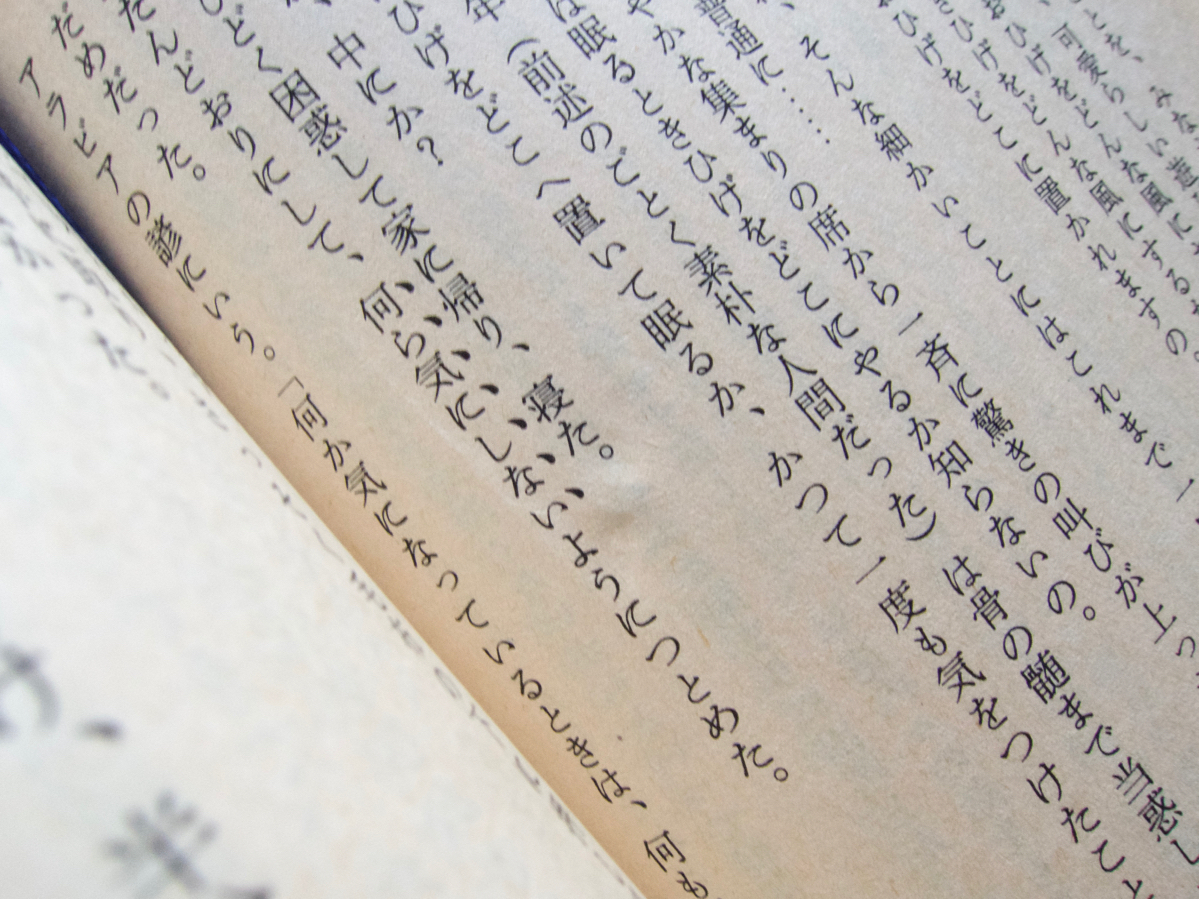 ことを、みな
可愛らしい
おひげをどんな風に
おひげをどんな風にするか
ひげをどこに置かれますの
そんな細かいことにはこれまで一
普通に……
やかな集まりの席から一斉に驚きの叫びが上っ
は眠るときひげをどこにやるか知らないの。
（前述のごとく素朴な人間だった）は骨の髄まで当惑し
ひげをどこへ置いて眠るか、かつて一度も気をつけたこと
中にか？
ひどく困惑して家に帰り、寝た。
だんどおりにして、何ら気にしないようにつとめた。
だめだった。
アラビアの諺にいう。「何か気になっているときは、何も